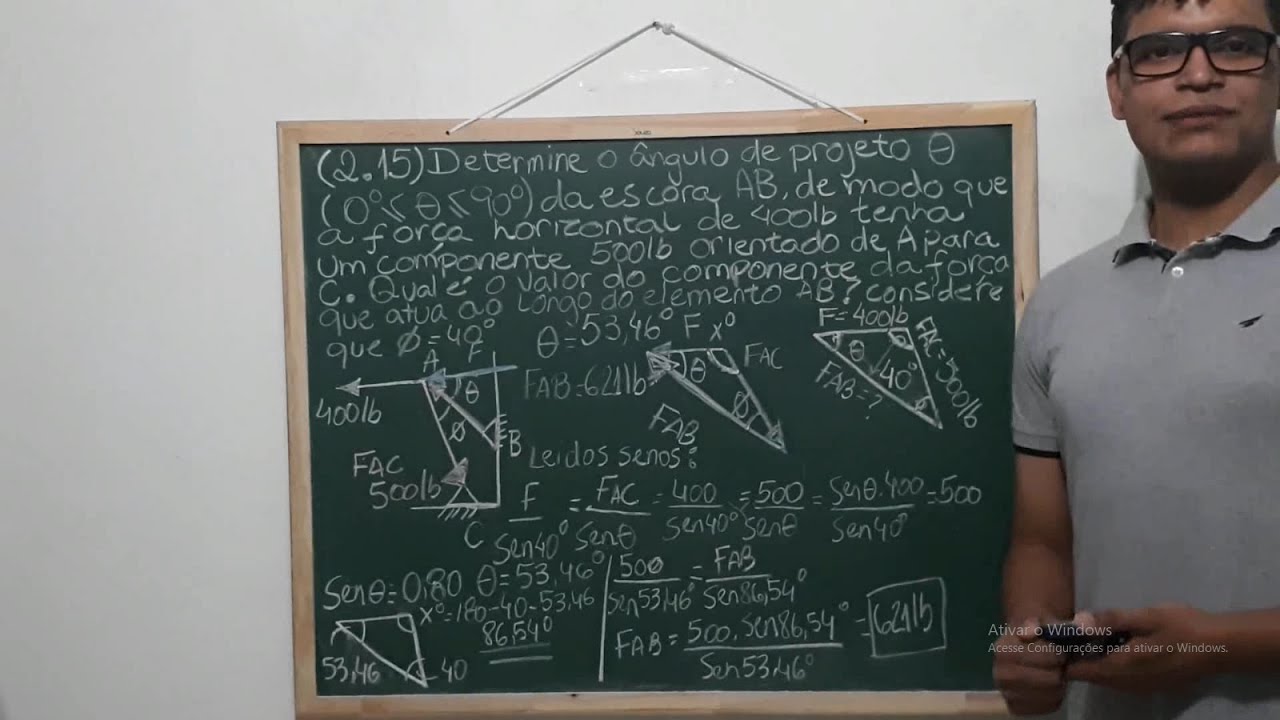 (2.15) Determine o ângulo de projeto θ
(0°⩽θ⩽90°) da escora AB, de modo que
a força horizontal de 400lb tenha
um componente 500lb orientado de A para
C. Qual é o valor do componente da força
que atua ao longo do elemento AB? considere
que ϕ=40°
θ=53,46°
F x°
F=400lb
A F
θ
FAC
θ
FAC=500lb
400lb
FAB=621lb
θ
40°
FAB=?
ϕ
ϕ
FAB
B
Lei dos senos:
FAC
500lb
C
F/Sen40° = FAC/Senθ = 400/Sen40° = 500/Senθ = Senθ.400/Sen40° = 500
Senθ=0,80 θ=53,46°
x°=180-40-53,46
86,54°
53,46
40
500/Sen53,46° = FAB/Sen86,54°
FAB = 500.Sen86,54°/Sen53,46° = 621lb
Ativar o Windows
Acesse Configurações para ativar o Windows.